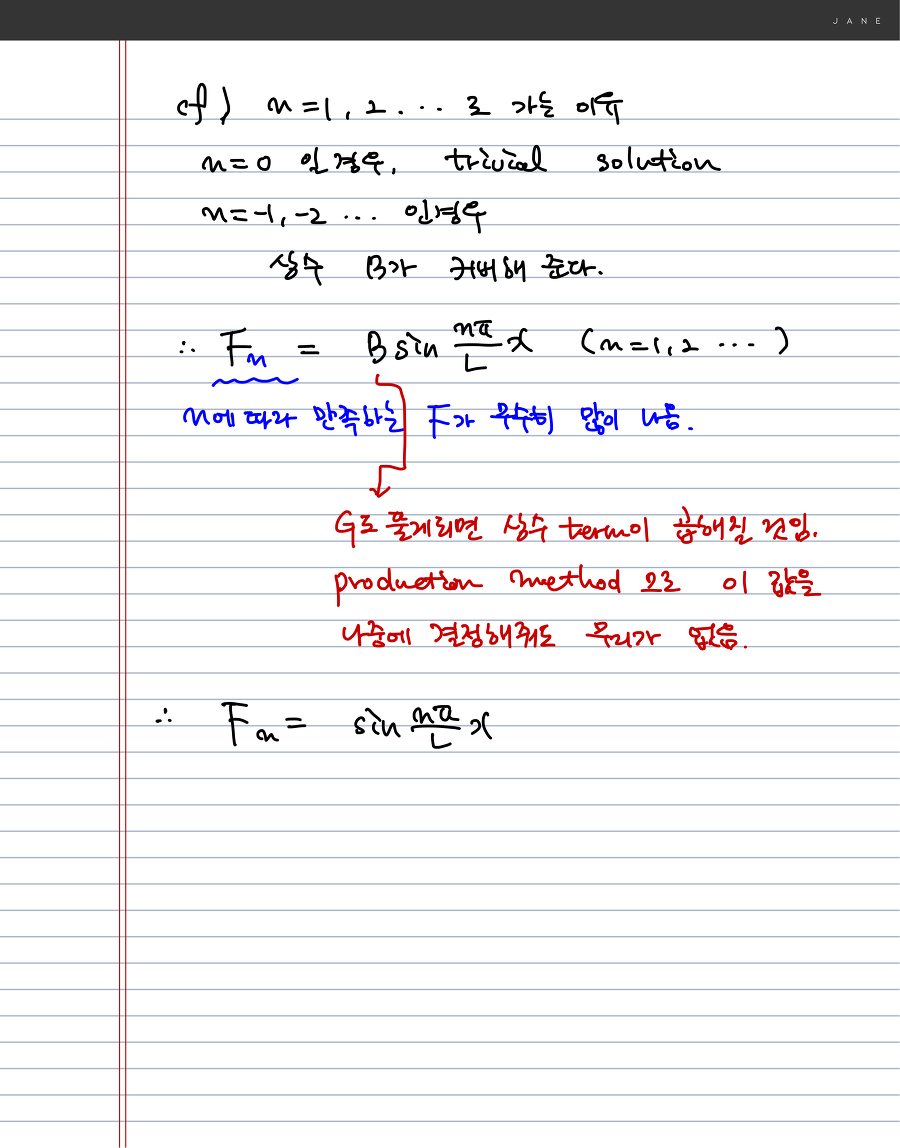 JANE
cf) n=1, 2 ... 로 가는 이유
n=0 인경우, trivial solution
n=-1, -2 ... 인경우
상수 B가 커버해 준다.
∴ Fn = B sin nπ/L x (n=1, 2 ...)
n에 따라 만족하는 F가 무수히 많이 나옴.
G로 풀게되면 상수 term이 곱해질 것임.
production method 으로 이 값을
나중에 결정해줘도 무리가 없음.
∴ Fn = sin nπ/L x